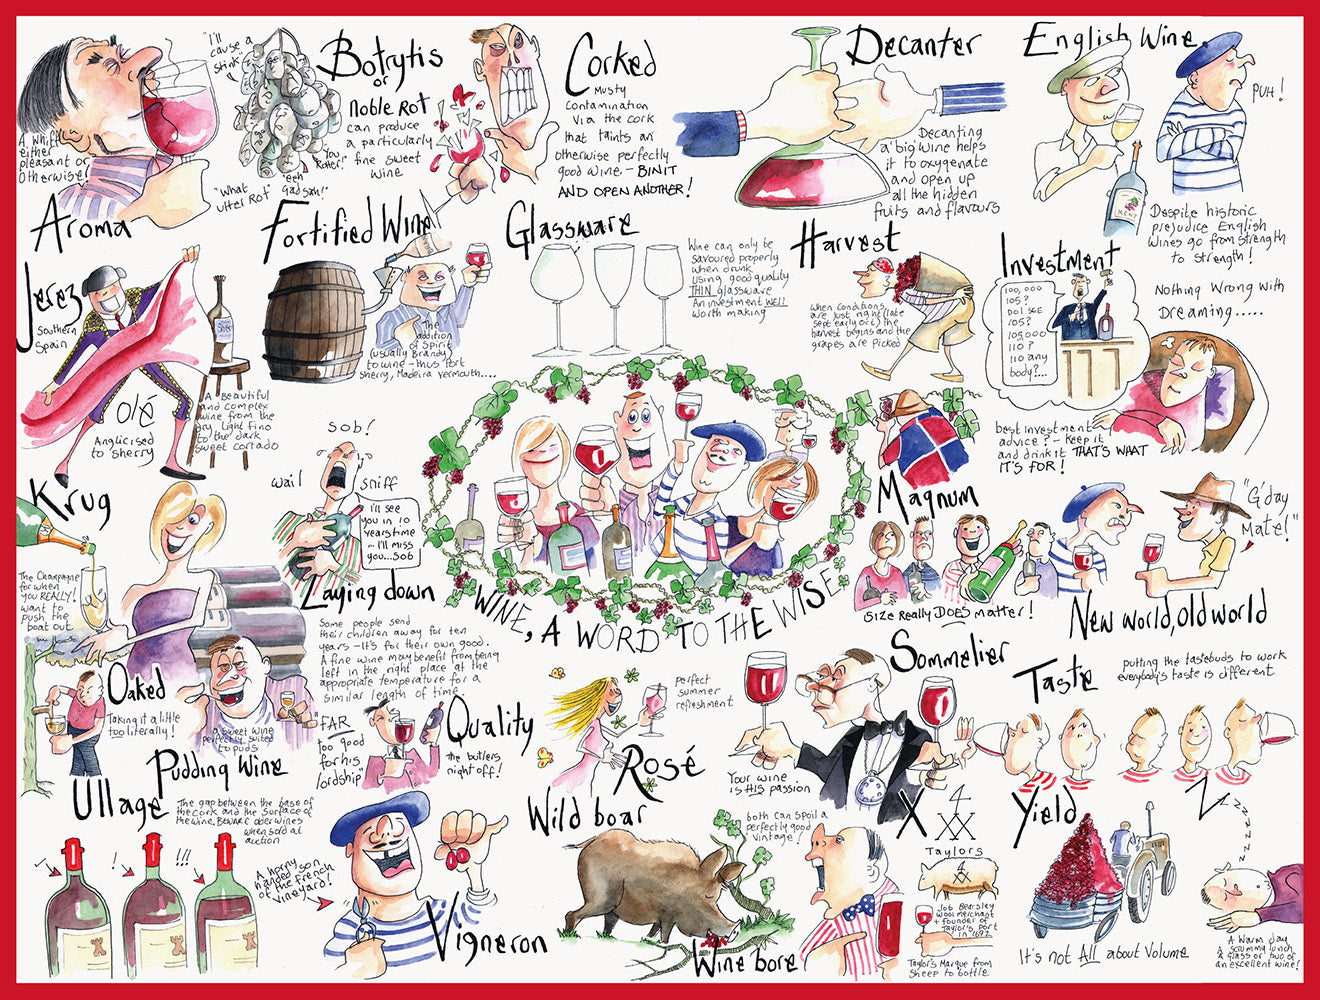 A whiff
either
pleasant or
otherwise!
Aroma
"I'll
cause a
stink"
"What
utter Rot"
"You
Rotter!"
"eeh
Gadsah!"
Botrytis
or
noble Rot
can produce
a particularly
fine sweet
wine
Corked
Musty
contamination
via the cork
that taints an
otherwise perfectly
good wine. - BIN IT
AND OPEN ANOTHER!
Decanter
Decanting
a 'big' wine helps
it to oxygenate
and open up
all the hidden
fruits and flavours
English Wine
PUH!
KENT
Despite historic
prejudice English
Wines go from strength
to strength!
Jerez
Southern
Spain
Olé
Anglicised
to sherry
A beautiful
and complex
wine from the
dry light fino
to the dark
sweet cortado
Fortified Wine
The
addition
of Spirit
(usually Brandy)
to wine - thus Port
Sherry, Madeira vermouth....
Glassware
Wine can only be
savoured properly
when drunk
using good quality
THIN glassware
An investment WELL
worth making
Harvest
When conditions
are just right (late
sept early oct) the
harvest begins and the
grapes are picked
Investment
100,000
105?
Do I see
105?
105,000
110?
110 any
body?...
Nothing wrong with
Dreaming.....
best investment
advice? - keep it
and drink it THAT'S WHAT
IT'S FOR!
Krug
The Champagne
for when
you REALLY!
want to
push the
boat out
Sob!
wail
sniff
I'll see
you in 10
years time
- I'll miss
you...sob
Laying down
Some people send
their children away for ten
years - it's for their own good.
A fine wine may benefit from being
left in the right place at the
appropriate temperature for a
similar length of time.
WINE, A WORD TO THE WISE
Magnum
Size Really DOES matter!
"G'day
Mate!"
New world, Old world
Oaked
Taking it a little
too literally!
a sweet wine
perfectly suited
to puds
Pudding Wine
"FAR
too good
for his
lordship"
Quality
the butlers
night off!
perfect
summer
refreshment
Rosé
Sommelier
Your wine
is HIS passion
Taste
putting the tastebuds to work
everybody's taste is different
Ullage
The gap between the base of
the cork and the surface of
the wine. Beware older wines
when sold at
auction
! !!!
A horny
handed son
of the French
vineyard!
Vigneron
Wild boar
both can spoil a
perfectly good
vintage!
Wine bore
X
4
XX
Taylors
Job Bearsley
wool merchant
+ founder of
Taylor's Port
in 1692
Taylor's Marque from
sheep to bottle.
Yield
It's not All about Volume
Z z z z z z z
A warm day
A scrummy lunch
a glass or two of
an excellent wine!